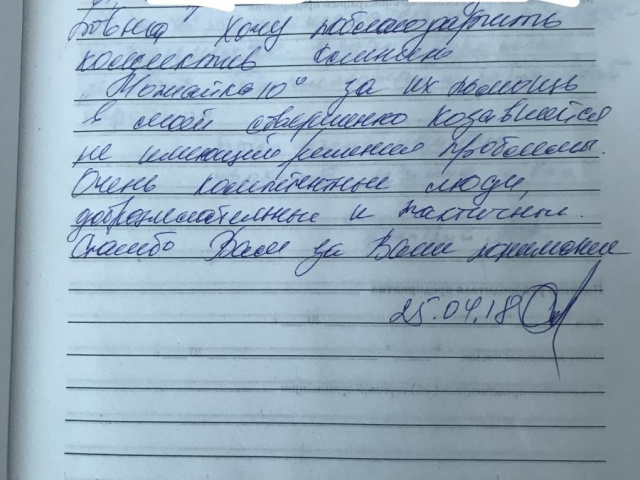 ровна хочу поблагодарить
коллектив клиники
"Можайка 10" за их помощь
в моей совершенно казавшейся
не имеющей решения проблемы.
Очень компетентные люди,
доброжелательные и тактичные.
Спасибо Вам за Ваш
25.04.18